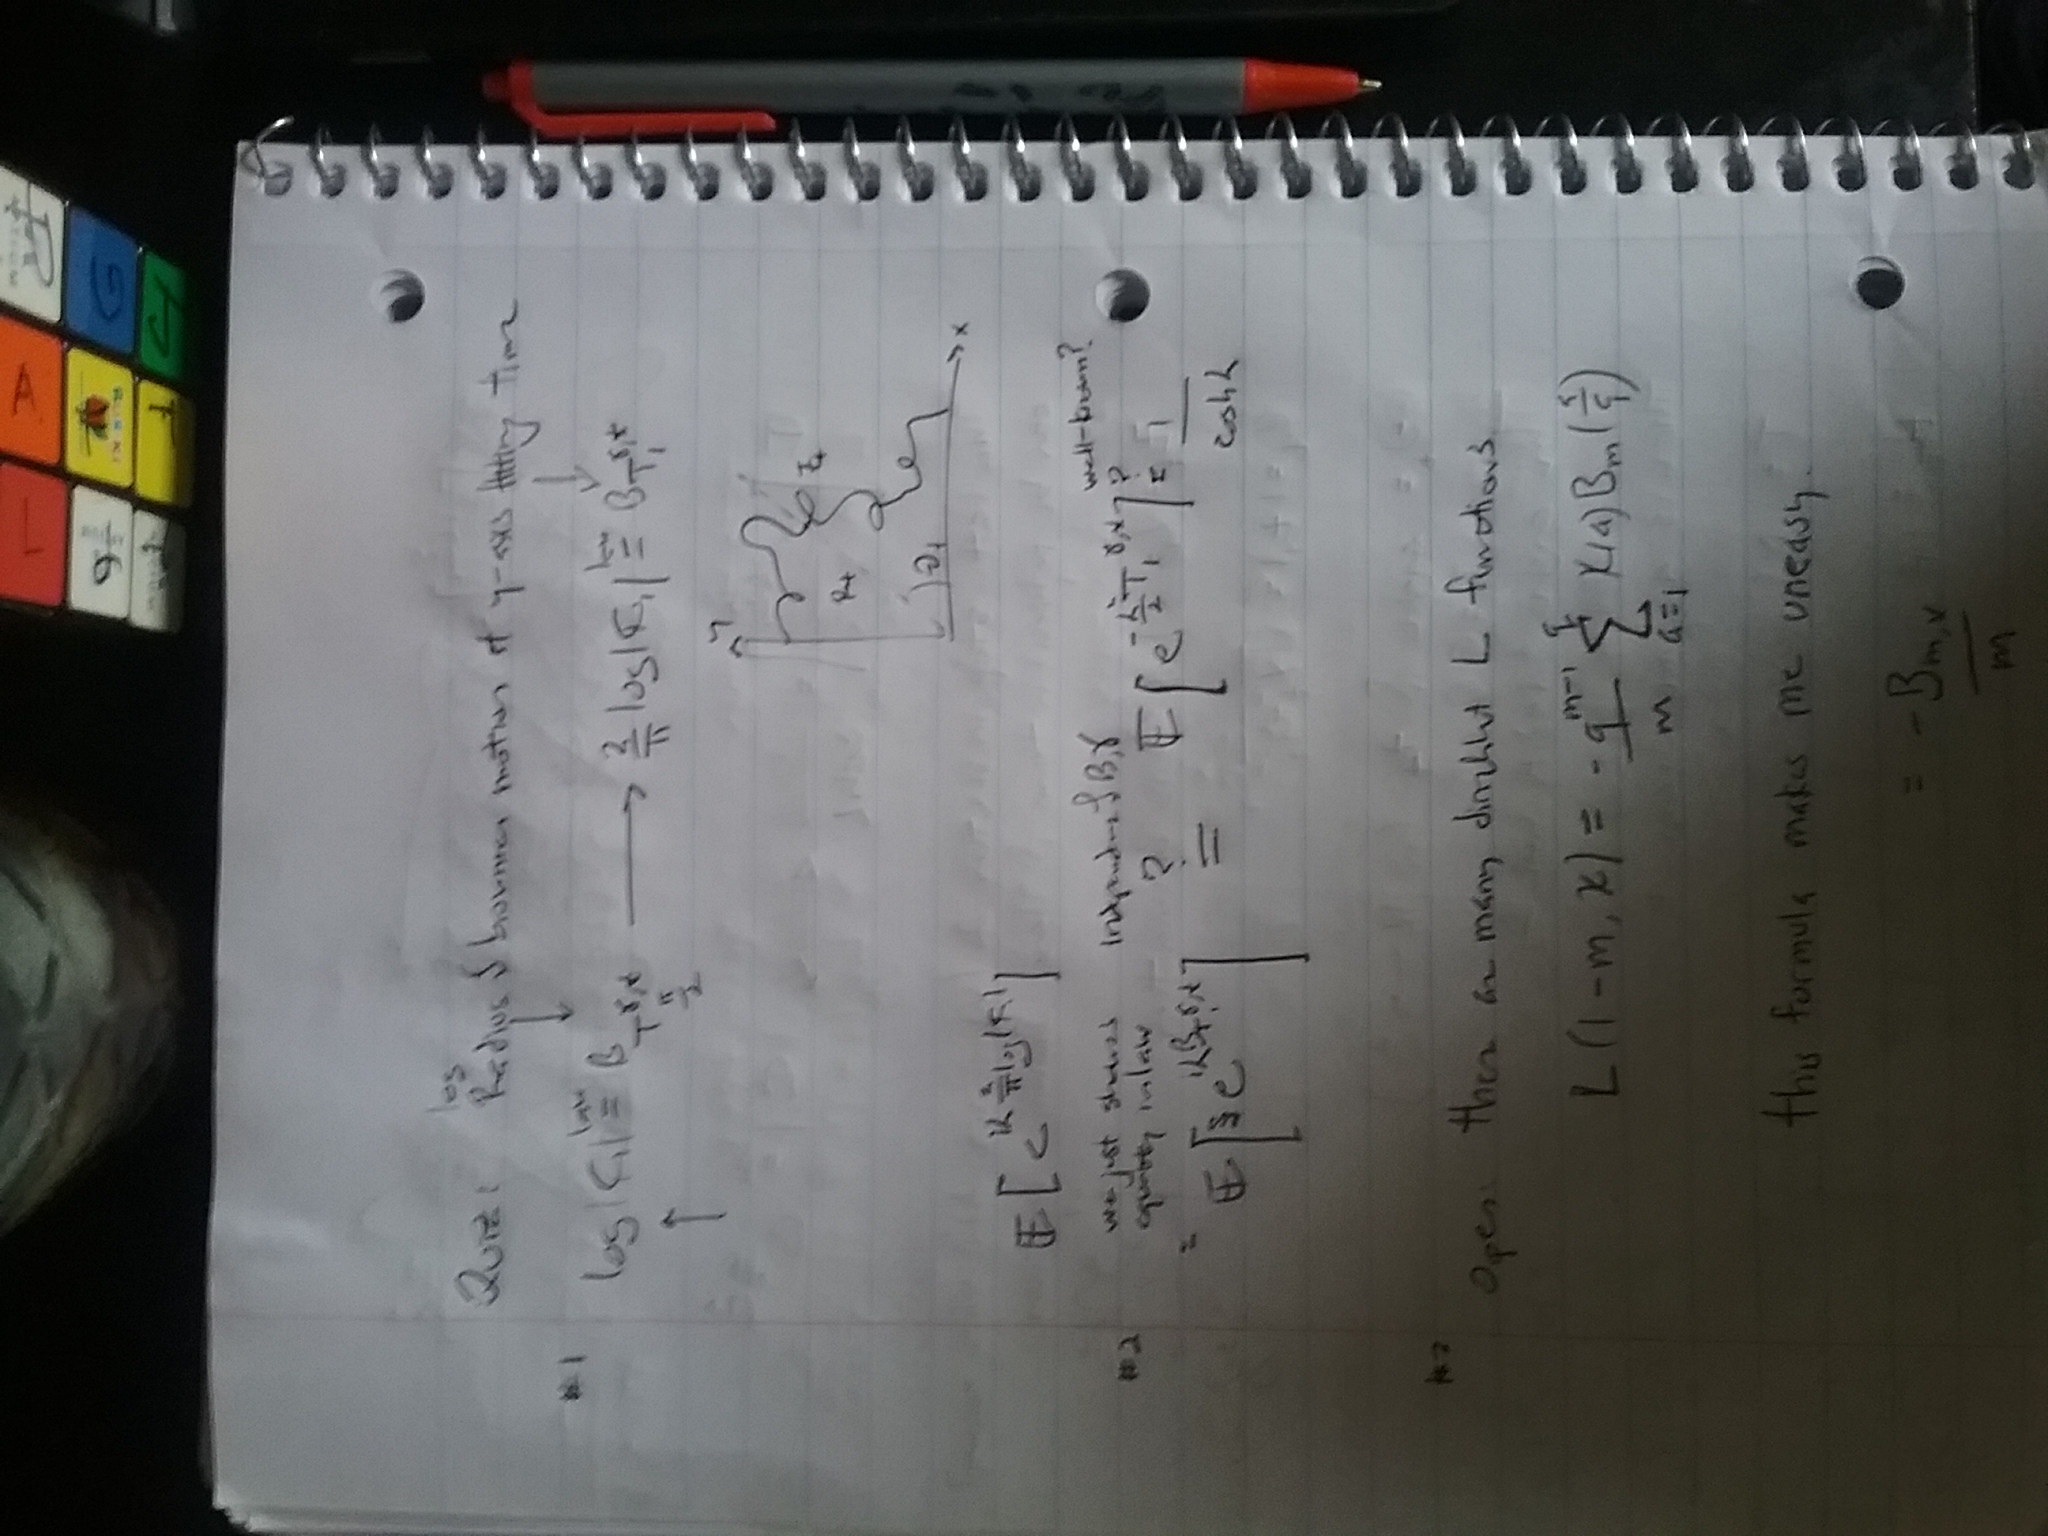 #1
Quiz: log Radius of brownian motion at y-axis hitting time
log|C₁| =^{law} B_{T^{γ,*}_{π/2}} ⟶ 2/π log|C₁| =^{law} B_{T₁^{γ,*}}
y
R_t
Z_t
θ_t
x
E[e^{iλ 2/π log|C₁|}]
#2
we just showed equality in law
independence of B, γ
well-known?
= E[e^{iλB_{T₁^{γ,*}}}] =^{?} E[e^{-λ²/2 T₁^{γ,*}}] =^{?} 1/cosh λ
#2
Open: there are many dirichlet L functions
L(1-m, χ) = -q^{m-1}/m Σ_{a=1}^{q} χ(a) B_m(a/q)
this formula makes me uneasy.
= -B_{m,χ}/m
1
A
9
G
4